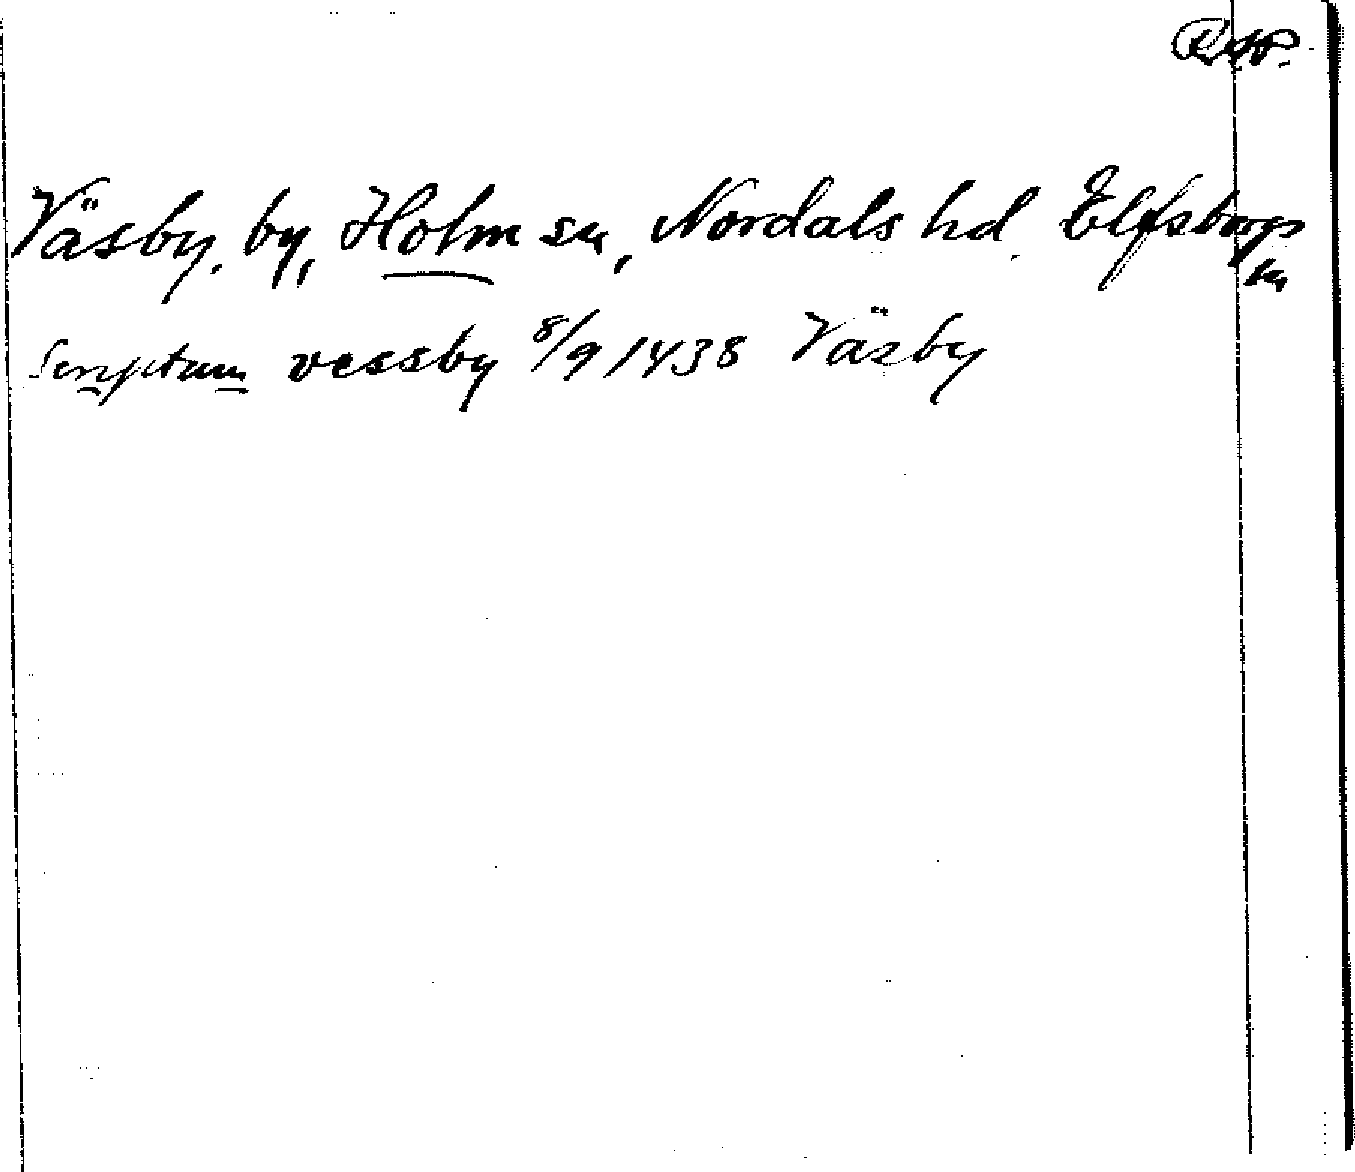 RAP.
Väsby, by, Holm sn, Nordals hd. Elfsborgs
ln
Scriptum vessby 8/9 1438 Väsby